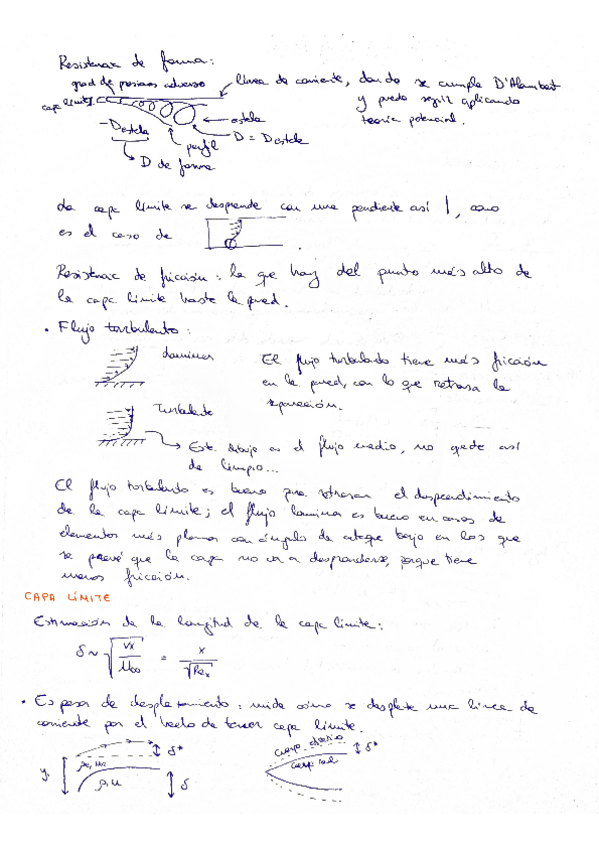 Resistencia de forma:
grad de presiones adverso
línea de corriente, donde se cumple D'Alambert
y puedo seguir aplicando
teoría potencial.
capa límite
estela
D = Destela
perfil
-Destela
D de forma
La capa límite se desprende con una pendiente así |, como
es el caso de
Resistencia de fricción: la que hay del punto más alto de
la capa límite hasta la pared.
• Flujo turbulento:
Laminar
El flujo turbulento tiene más fricción
en la pared, con lo que retrasa la
separación.
Turbulento
Este dibujo es el flujo medio, no queda así
de limpio...
El flujo turbulento es bueno para retrasar el desprendimiento
de la capa límite; el flujo laminar es bueno en casos de
elementos más planos con ángulo de ataque bajo en los que
se prevé que la capa no va a desprenderse, porque tiene
menos fricción.
CAPA LÍMITE
Estimación de la longitud de la capa límite:
δ ~ √(νx/U∞) = x/√Reₓ
• Espesor de desplazamiento: mide cómo se desplaza una línea de
corriente por el hecho de tener capa límite.
δ*
y
ρ, u
δ
cuerpo efectivo
cuerpo real
δ*